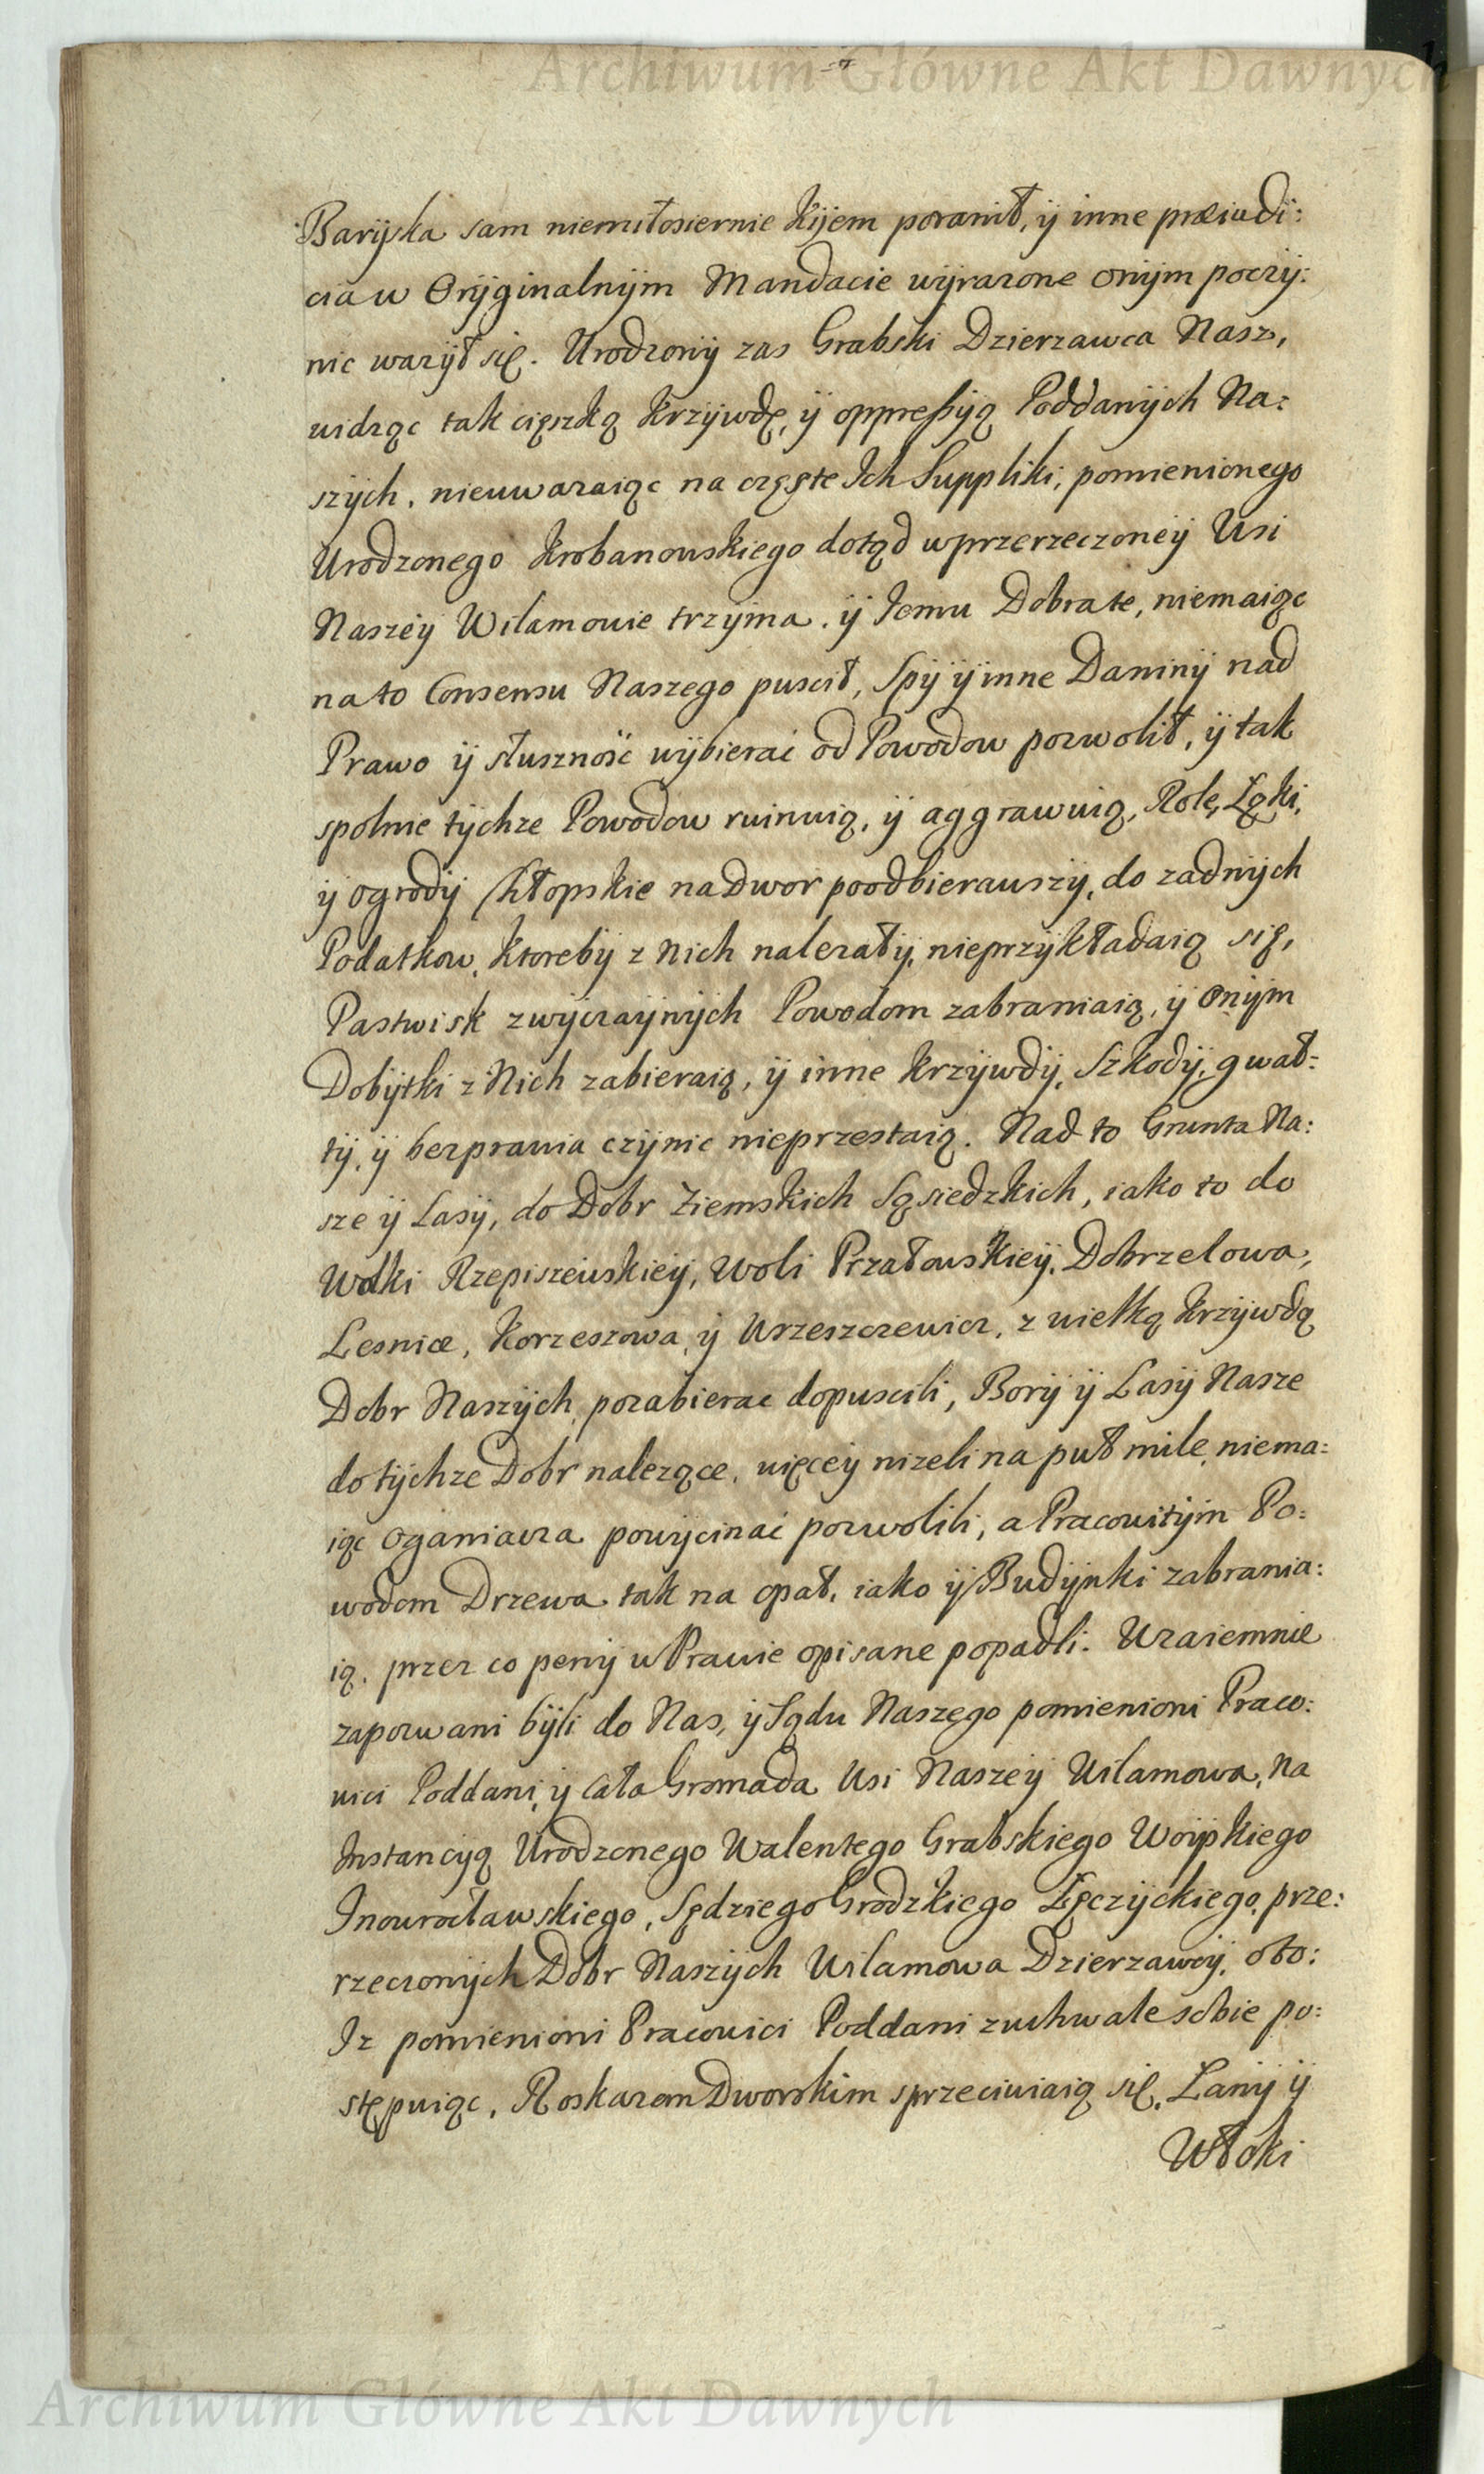 Archiwum Główne Akt Dawnych
Baryska sam niemiłosiernie kijem poranił, ÿ inne præiudi:
cia w Orÿginalnÿm Mandacie wÿrazone onÿm poczÿ:
nic wazÿł się. Urodzonÿ zas Grabski Dzierzawca Nasz,
widząc tak cięszką krzÿwdę, ÿ oppressÿą Poddanÿch Na:
szÿch, nieuwazaiąc na częste Ich Suppliki, pomienionego
Urodzonego Krobanowskiego dotąd wprzerzeczoneÿ Wsi
Naszeÿ Wilamowie trzÿma, ÿ Jemu Dobra te, niemaiąc
na to Consensu Naszego puscił, Spÿ ÿ inne Daninÿ nad
Prawo ÿ słuszność wÿbierać od Powodow pozwolił, ÿ tak
spolnie tÿchze Powodow ruinuią, ÿ aggrawuią, Role, Łąki,
ÿ ogrodÿ Chłopskie na Dwor poodbierawszÿ, do zadnÿch
Podatkow, ktorebÿ z Nich nalezałÿ, nieprzÿkładaią się,
Pastwisk zwÿczaÿnÿch Powodom zabraniaią, ÿ Onÿm
Dobÿtki z Nich zabieraią, ÿ inne krzÿwdÿ, Szkodÿ, gwał:
tÿ, ÿ bezprawia czÿnic nieprzestaią. Nad to Grunta Na:
sze ÿ Lasÿ, do Dobr Ziemskich Sąsiedzkich, iako to do
Wolki Rzepiszewskieÿ, Woli Przatowskieÿ, Dobrzelowa,
Lesnice, Korzeszowa, ÿ Wrzeszczewicz, z wielką krzÿwdą
Dobr Naszÿch, pozabierac dopuscili, Borÿ ÿ Lasÿ Nasze
do tÿchze Dobr nalezące, więceÿ nizeli na puł mile, niema:
iąc Oganiacza powÿcinać pozwolili, a Pracowitÿm Po:
wodom Drzewa tak na opał, iako ÿ Budÿnki zabrania:
ią, przez co penÿ w Prawie opisane popadli. Wzaiemnie
zapozwani bÿli do Nas, ÿ Sądu Naszego pomienioni Praco:
wici Poddani, ÿ Cała Gromada Wsi Naszeÿ Wilamowa, na
Instancÿą Urodzonego Walentego Grabskiego Woÿskiego
Inowrocławskiego, Sędziego Grodzkiego Łęczÿckiego, prze:
rzeczonÿch Dobr Naszÿch Wilamowa Dzierzawcÿ, oto:
Iz pomienioni Pracowici Poddani zuchwale sobie po:
stępuiąc, Roskazom Dworskim sprzeciwiaią się, Łanÿ ÿ
Włoki
Archiwum Główne Akt Dawnych